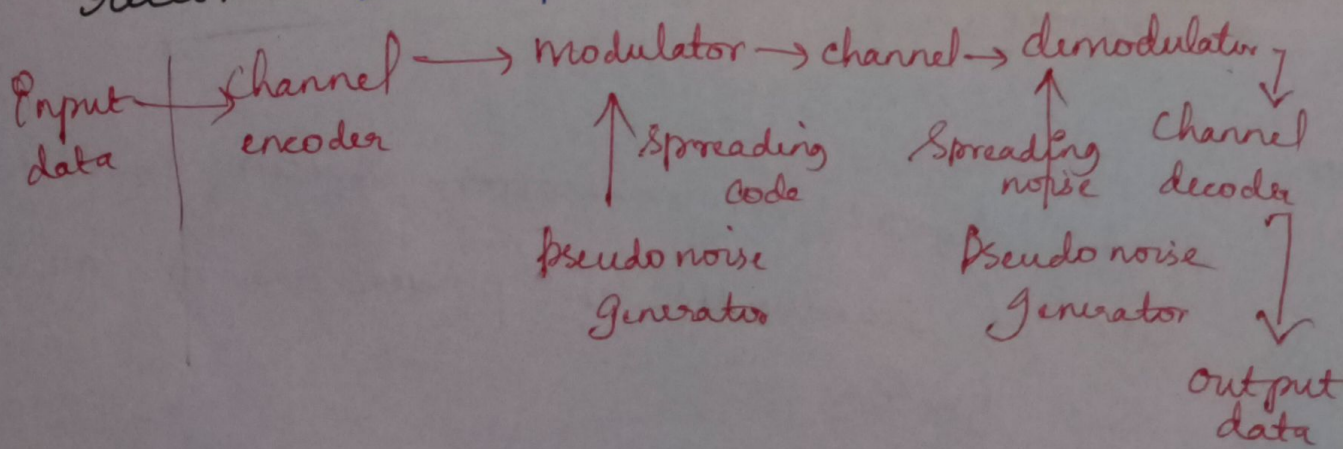 Input data
Channel encoder
modulator
channel
demodulator
Channel decoder
output data
spreading code
Pseudo noise generator
Spreading noise
Pseudo noise generator